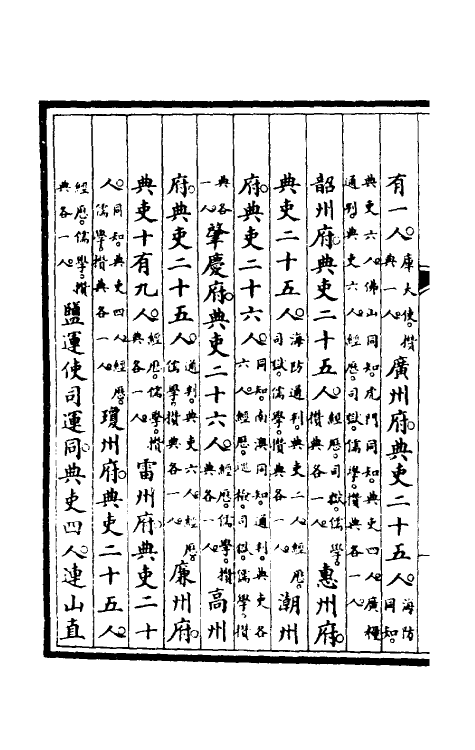 有一人。庫大使。攢典一人。廣州府。典吏二十五人。海防同知。
典吏六人。佛山同知。虎門同知。典吏四人。廣糧通判典吏六人。經歷。司獄。儒學。攢典各一人。
韶州府。典吏二十五人。經歷。司獄。儒學。攢典各一人。惠州府。
典吏二十五人。海防通判。典吏二人。經歷。司獄。儒學。攢典各一人。潮州
府。典吏二十六人。同知。南澳同知。通判。典吏各六人。經歷。司獄。儒學。攢
典各一人。肇慶府。典吏二十六人。經歷。儒學。攢典各一人。高州
府。典吏二十五人。通判。典吏六人。經歷。儒學。攢典各一人。廉州府。
典吏十有九人。經歷。儒學。攢典各一人。雷州府典吏二十
人。同知。典吏四人。經歷。儒學。攢典各一人。瓊州府。典吏二十五人。
經歷。儒學。攢典各一人。鹽運使司運同。典吏四人。連山直